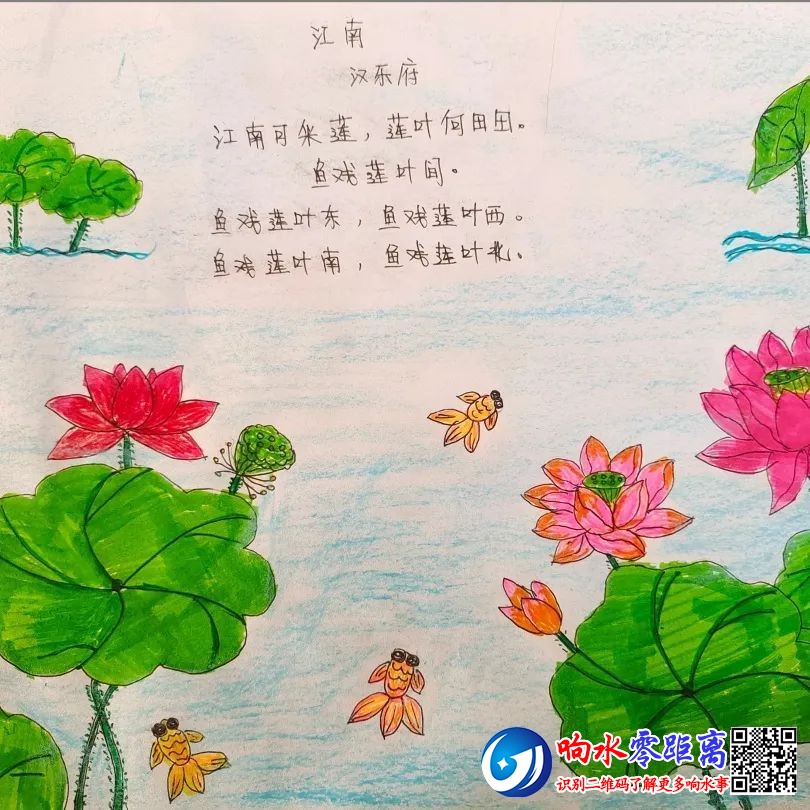 江南
汉乐府
江南可采莲，莲叶何田田。
鱼戏莲叶间。
鱼戏莲叶东，鱼戏莲叶西。
鱼戏莲叶南，鱼戏莲叶北。
响水零距离
识别二维码了解更多响水事